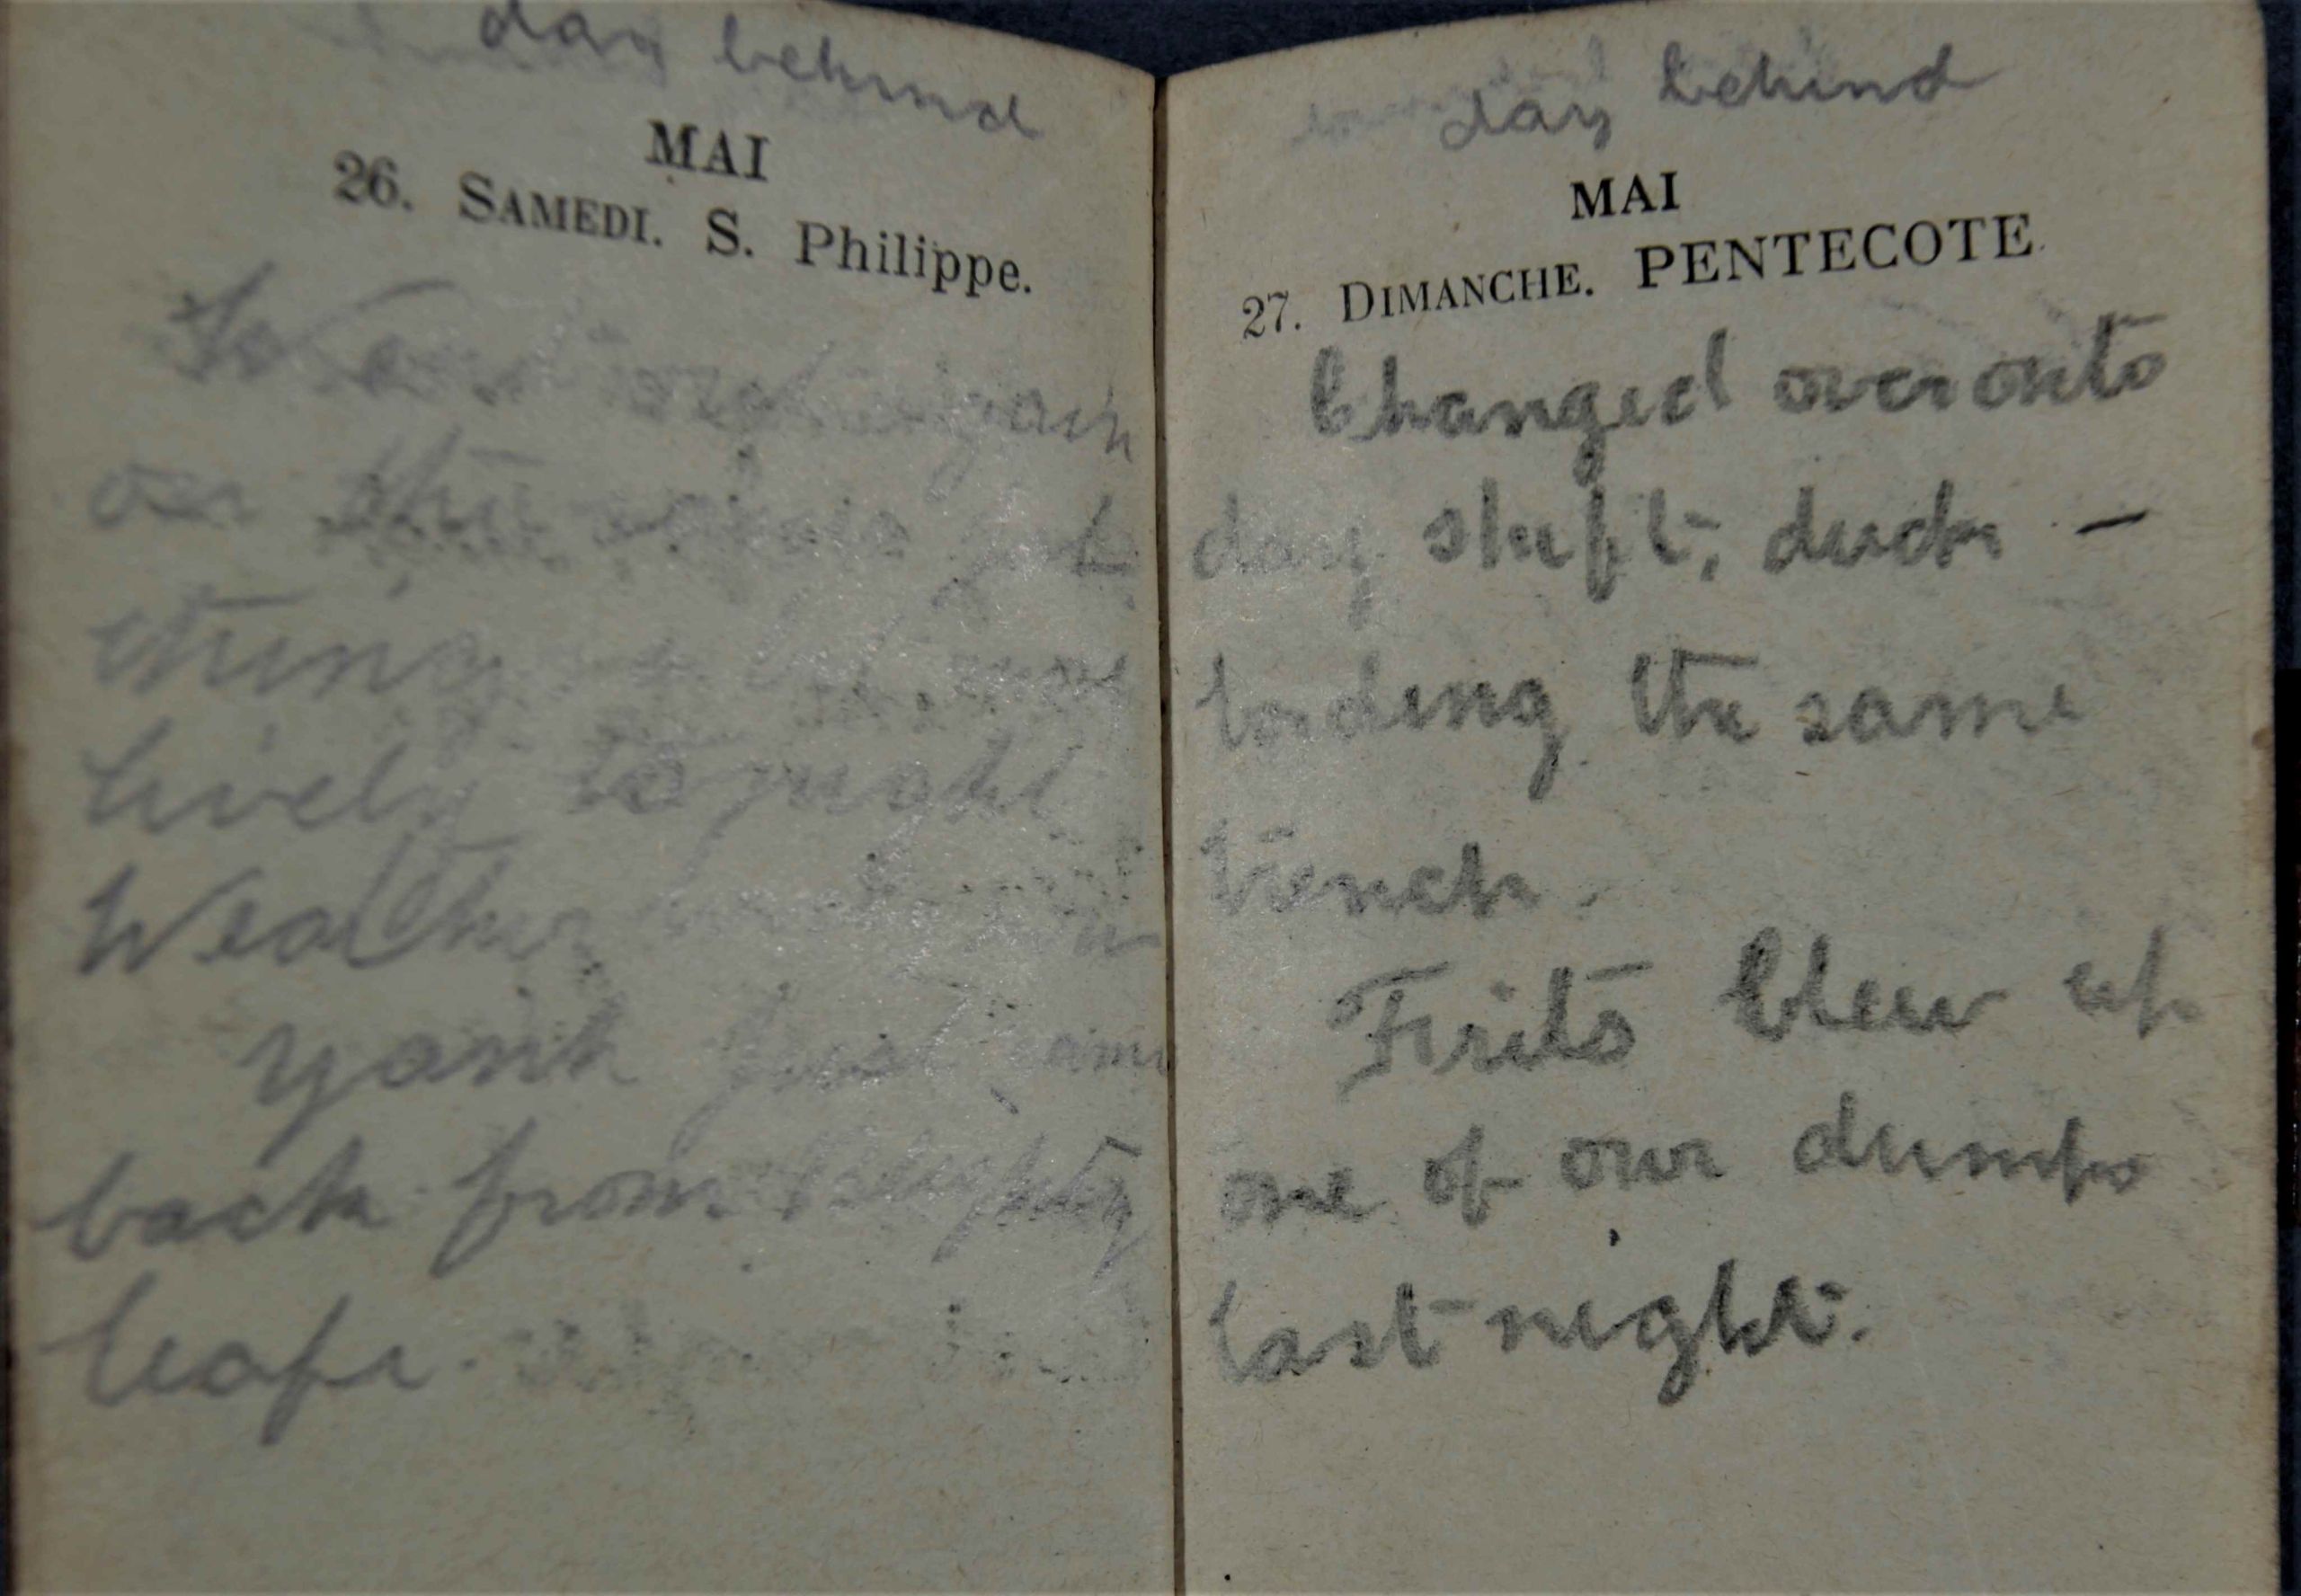 day behind
MAI
26. SAMEDI. S. Philippe.
again
on the
thing
lively to night
Weather
Yank just came
back from Blighty
leafe.
day behind
MAI
27. DIMANCHE. PENTECOTE.
Changed over onto
day shift, duck -
bording the same
trench.
Frits blew up
one of our dumps
last night.